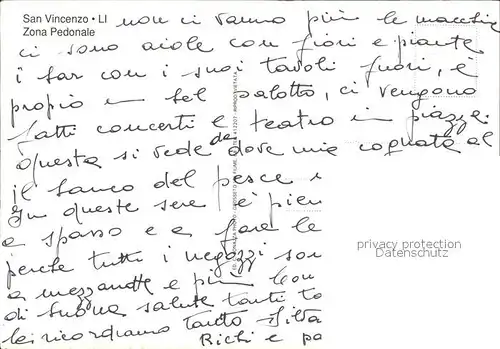 San Vincenzo • LI
Zona Pedonale
non ci vanno più le macchine
ci sono aiole con fiori e piante
i bar con i suoi tavoli fuori, è
proprio un bel salotto, ci vengono
fatti concerti e teatro in piazza.
questa si vede da dove mia cognata al
il banco del pesce
In queste sere è pien
a spasso e a fare le
perche tutti i negozzi son
a mezzanotte e più
di buona salute tanti
ricordiamo tanto Silva
Richi e
privacy protection
Datenschutz